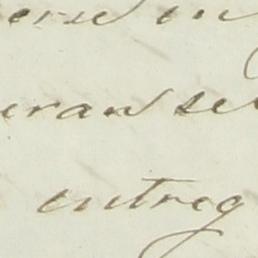 erse en
eran se
entreg